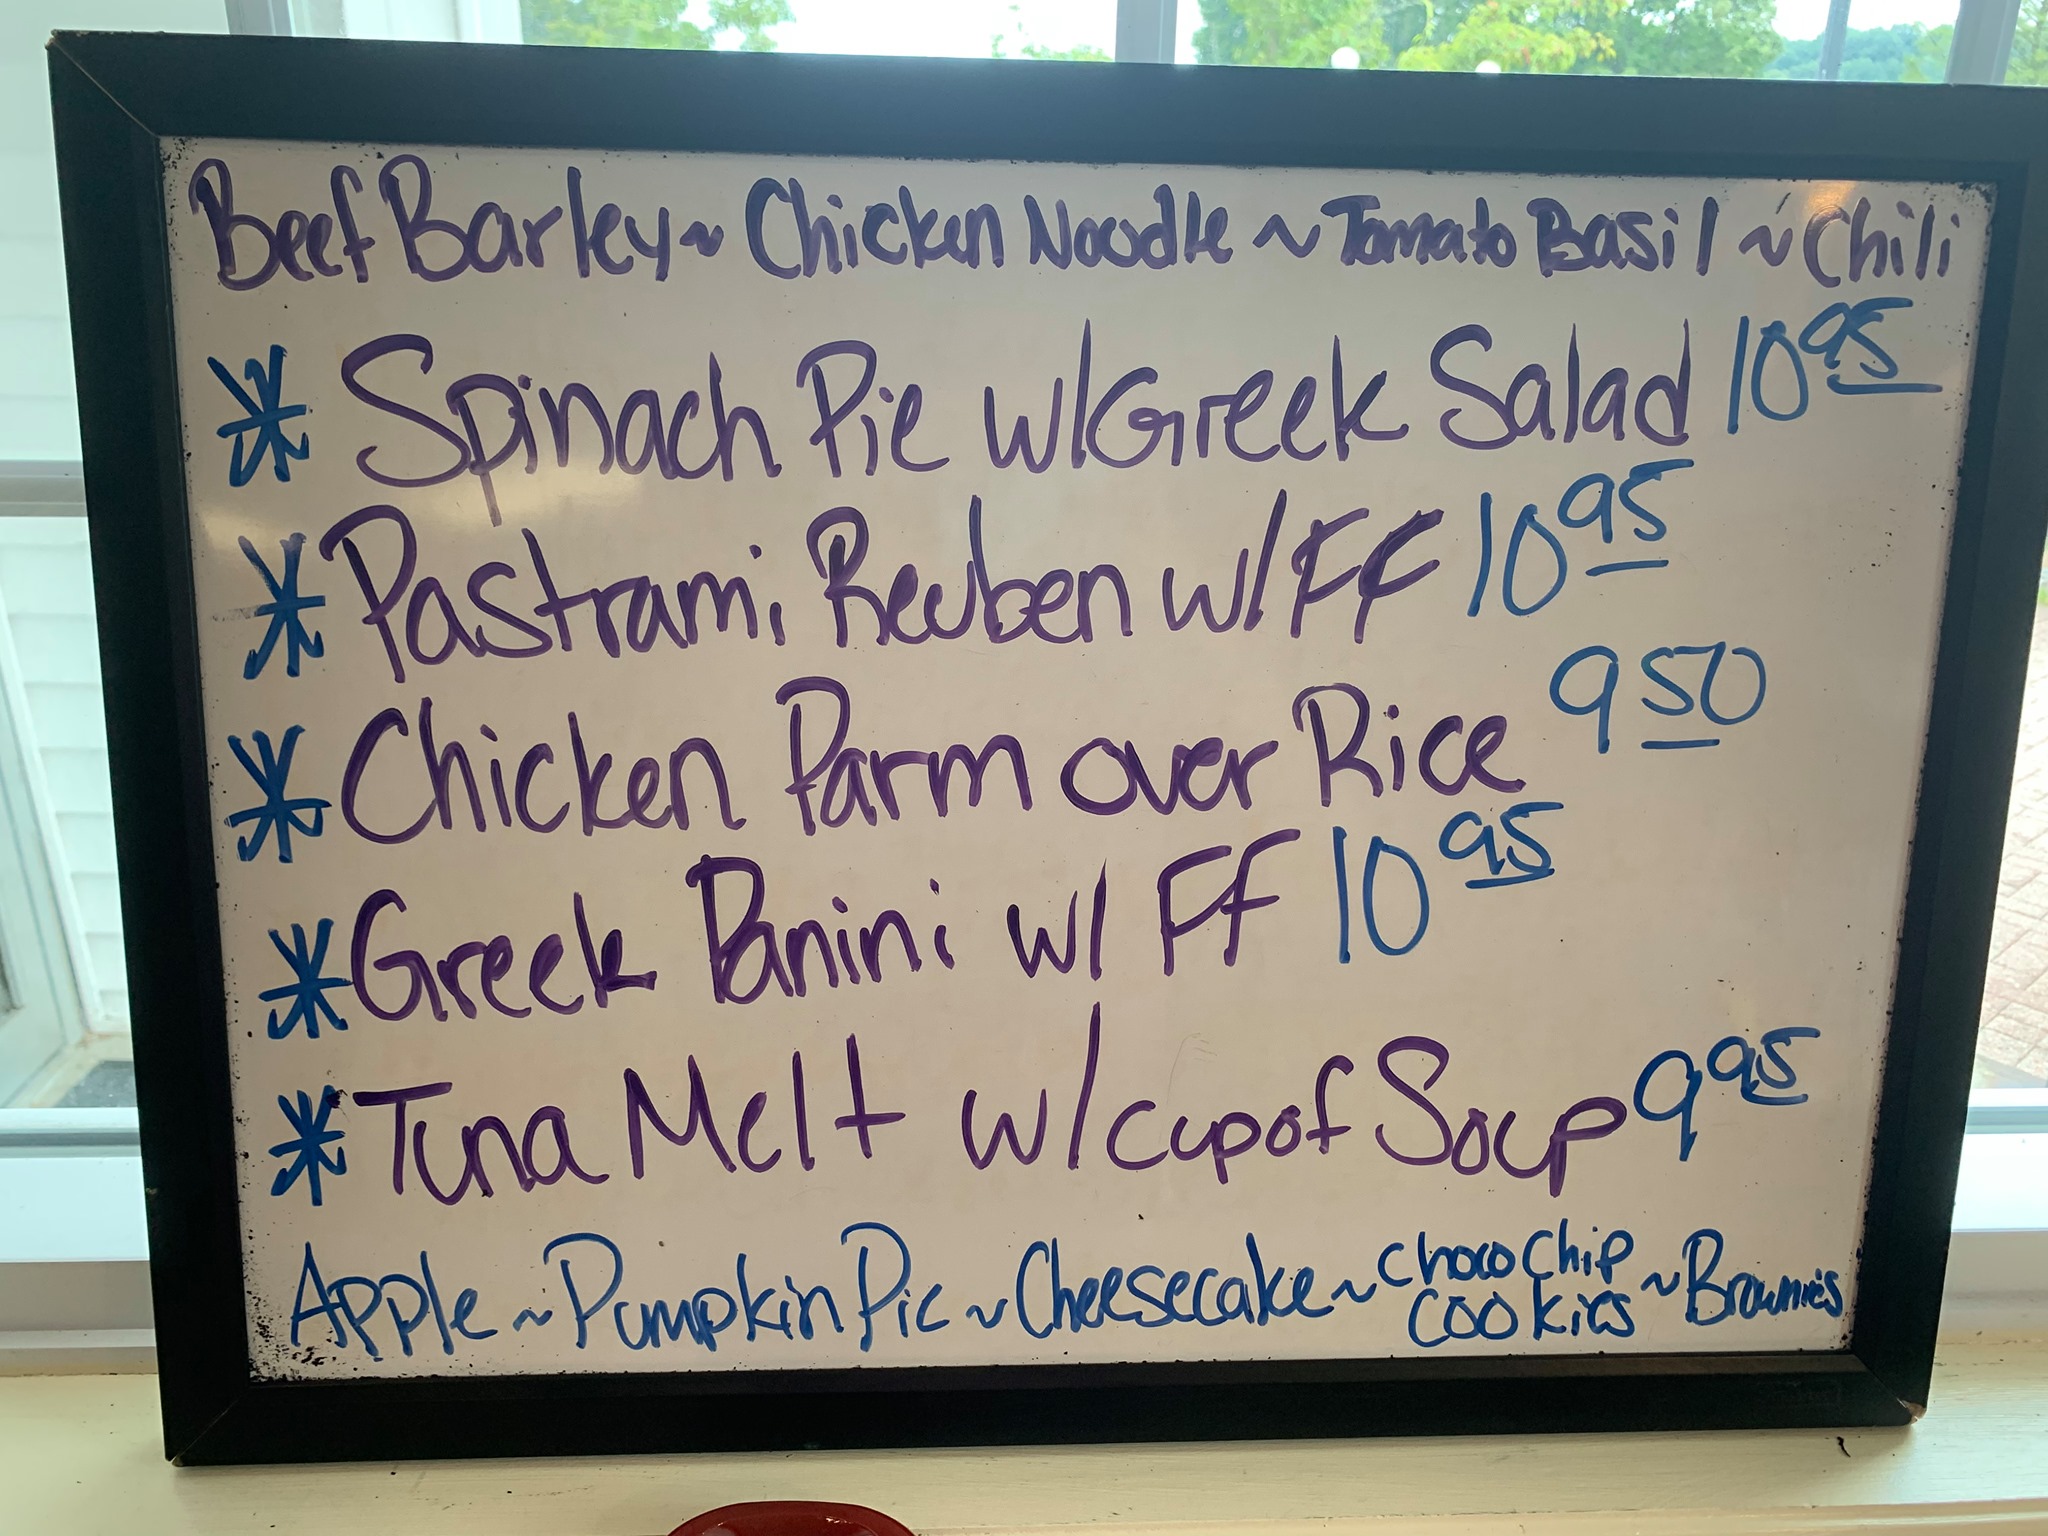 Beef Barley ~ Chicken Noodle ~ Tomato Basil ~ Chili
* Spinach Pie w/Greek Salad 10 95
* Pastrami Reuben w/FF 10 95
* Chicken Parm over Rice 9 50
* Greek Panini w/ FF 10 95
* Tuna Melt w/cup of Soup 9 95
Apple ~ Pumpkin Pie ~ Cheesecake ~ Choco Chip Cookies ~ Brownies